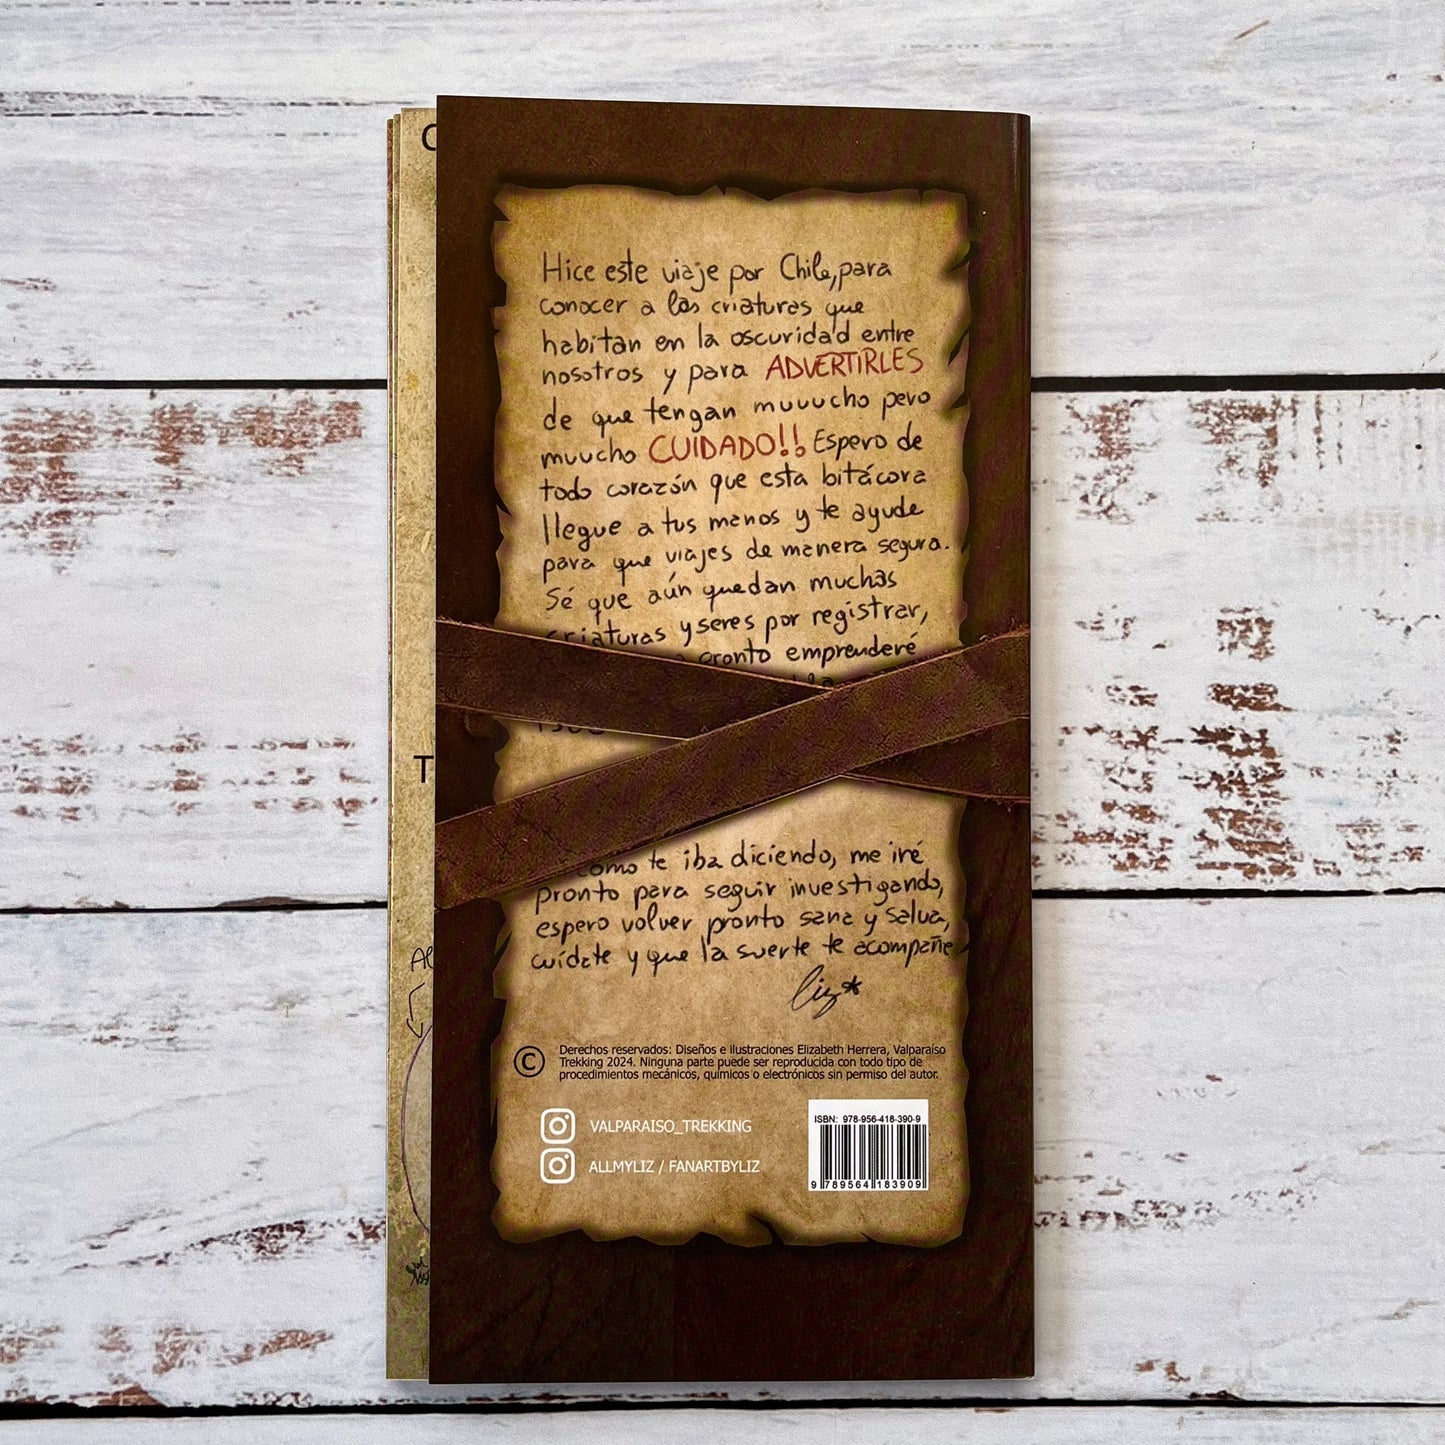 Hice este viaje por Chile, para
conocer a las criaturas que
habitan en la oscuridad entre
nosotros y para ADVERTIRLES
de que tengan muuucho pero
muucho CUIDADO!! Espero de
todo corazón que esta bitácora
llegue a tus manos y te ayude
para que viajes de manera segura.
Sé que aún quedan muchas
criaturas y seres por registrar,
pronto emprenderé
como te iba diciendo, me iré
pronto para seguir investigando,
espero volver pronto sana y salva,
cuídate y que la suerte te acompañe
Liz*
© Derechos reservados: Diseños e ilustraciones Elizabeth Herrera, Valparaíso
Trekking 2024. Ninguna parte puede ser reproducida con todo tipo de
procedimientos mecánicos, químicos o electrónicos sin permiso del autor.
VALPARAISO_TREKKING
ALLMYLIZ / FANARTBYLIZ
ISBN: 978-956-418-390-9
9 789564 183909
T